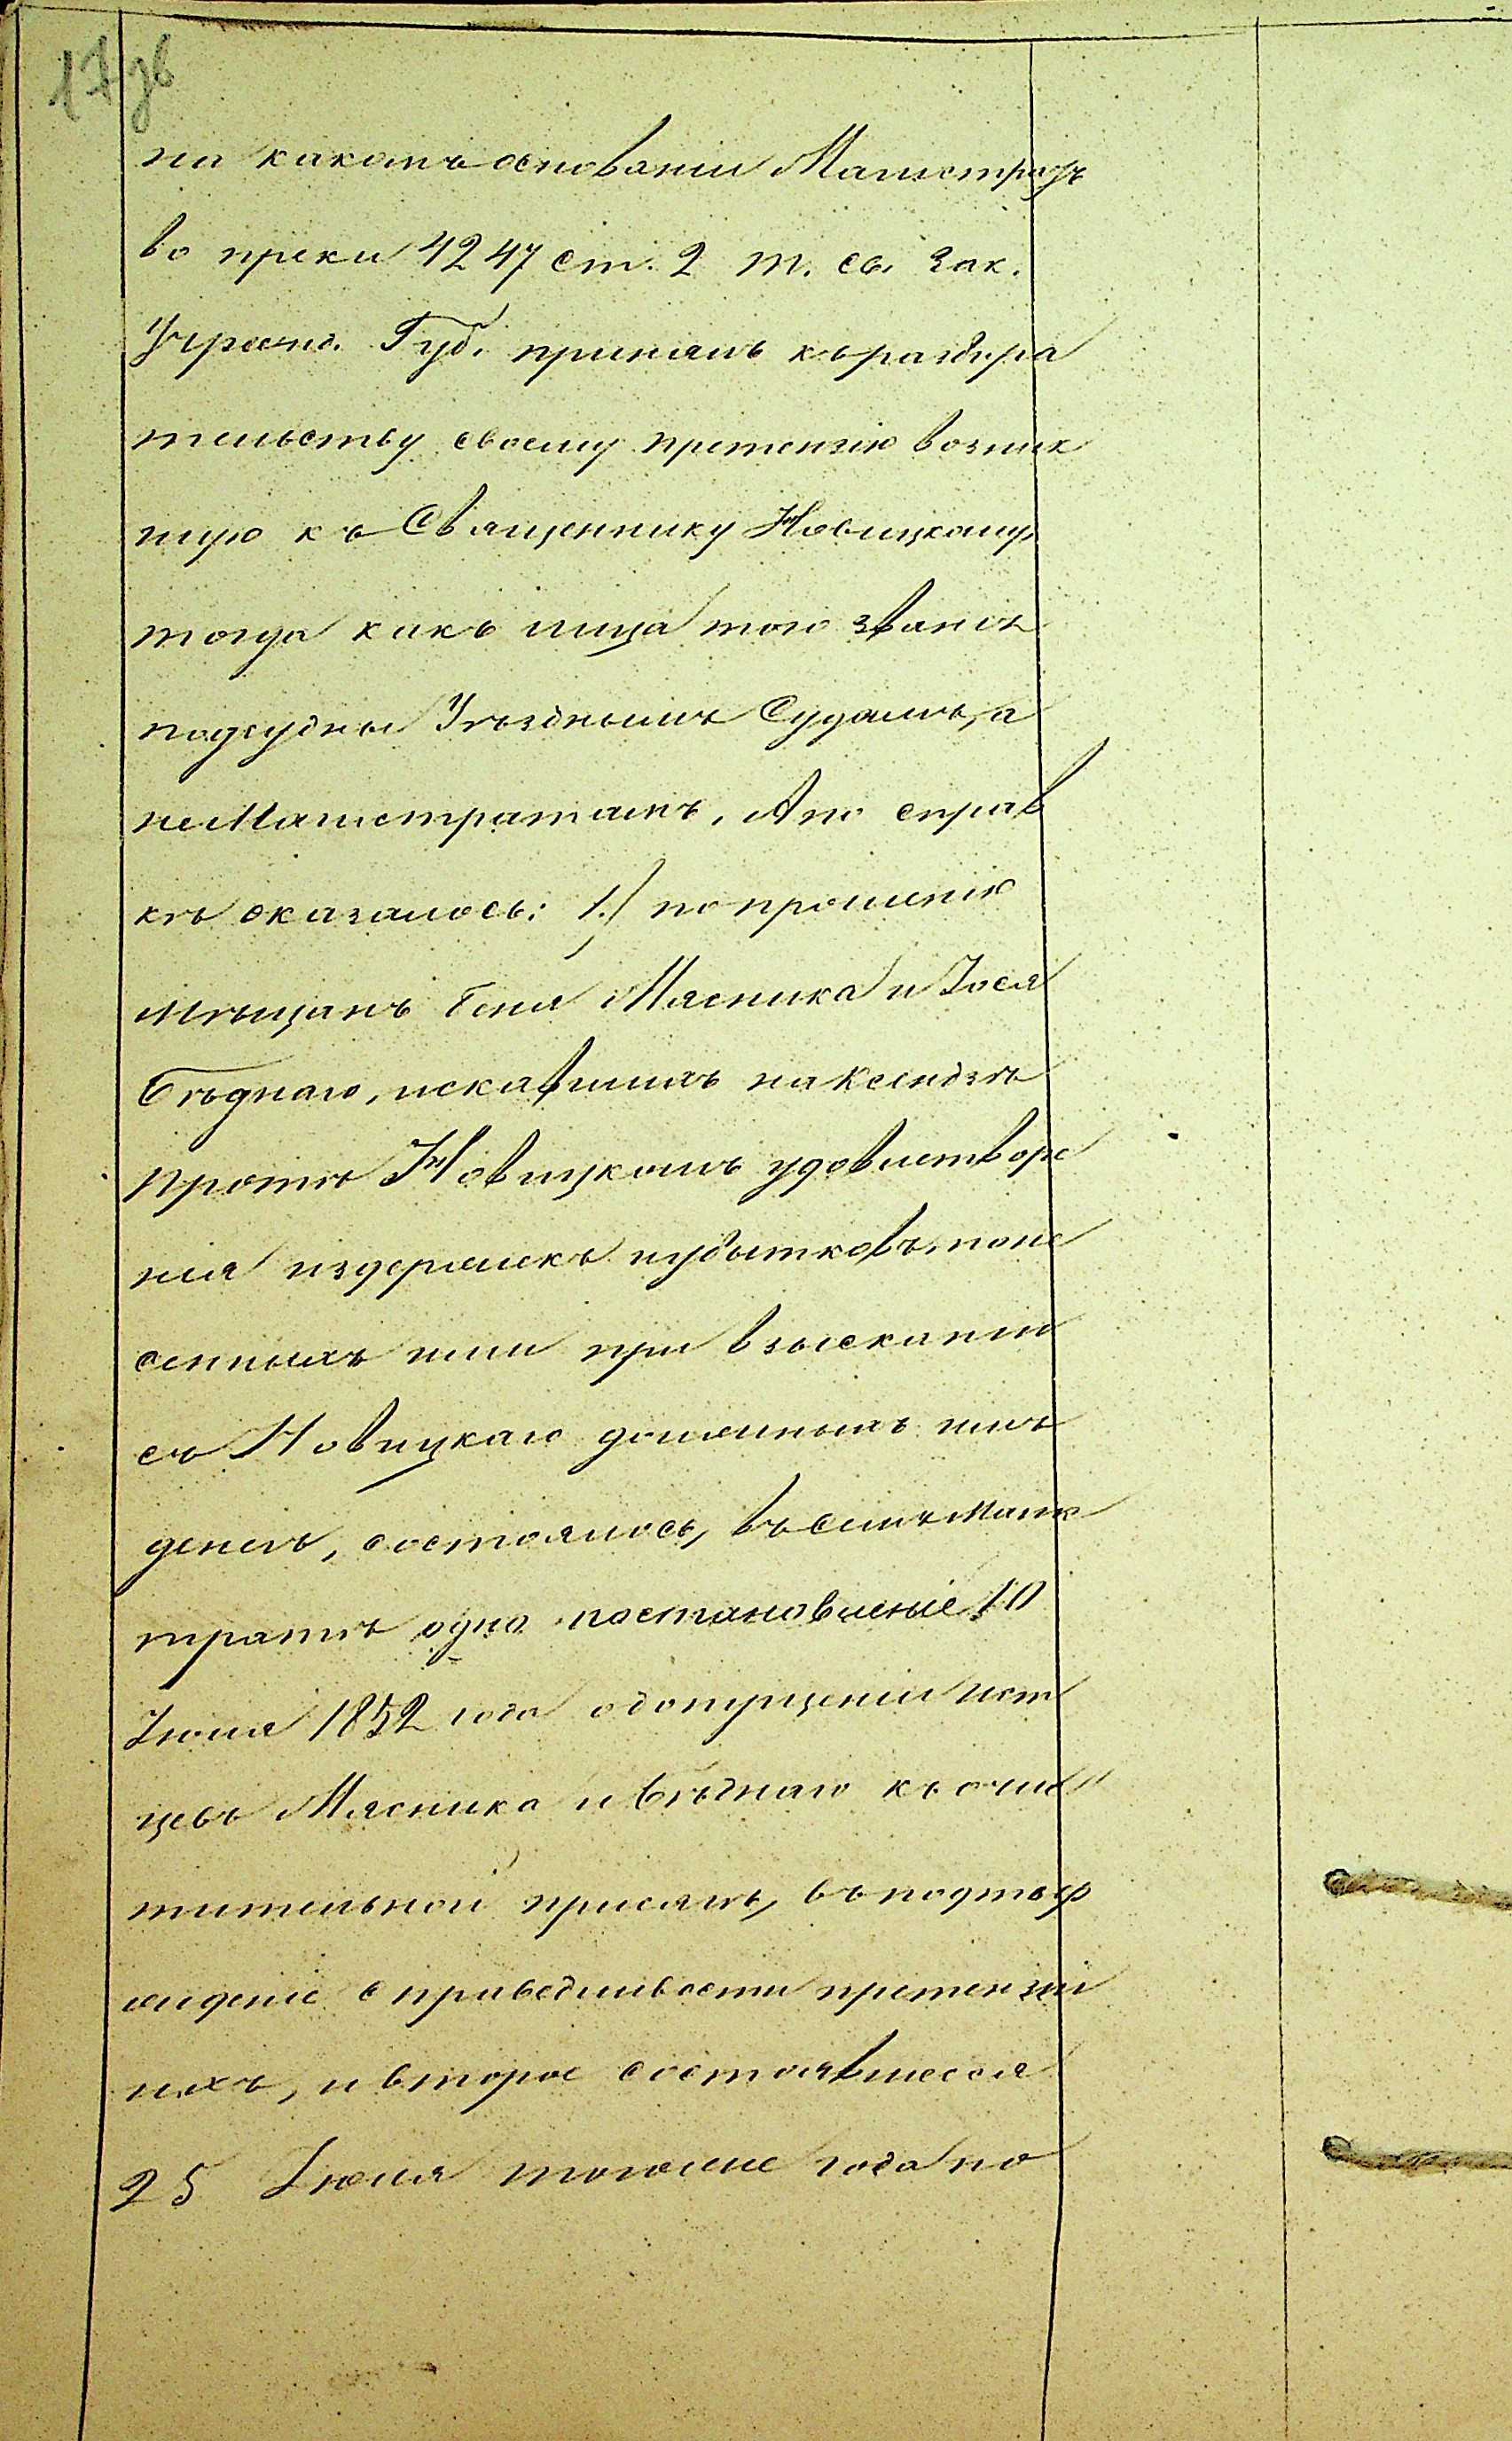 17 зв
на какомъ основаніи Магистратъ
во преки 4247 ст. 2 т. св. Зак.
Учрежд. Губ. принялъ къ разбира
тельству своему претензію возник
шую къ Священнику Новицкому,
тогда какъ лица того званія
подсудны Уѣзднымъ Судамъ, а
не Магистратамъ. А по справ
кѣ оказалось: 1.) по прошенію
мѣщанъ Беня Мясника и Іося
Бѣднаго, искавшихъ на Ксендзѣ
Протѣ Новицкомъ удовлетворе
нія издержекъ и убытковъ, поне
сенныхъ ими при взысканіи
съ Новицкаго должныхъ имъ
денегъ, состоялось, въ семъ Магис
тратѣ одно постановленіе 10
Іюля 1852 года о допущеніи ист
цевъ Мясника и Бѣднаго къ очис
тительной присягѣ, въ подтвер
жденіе справедливости претензіи
ихъ, и второе состоявшееся
25 Іюля тогоже года по